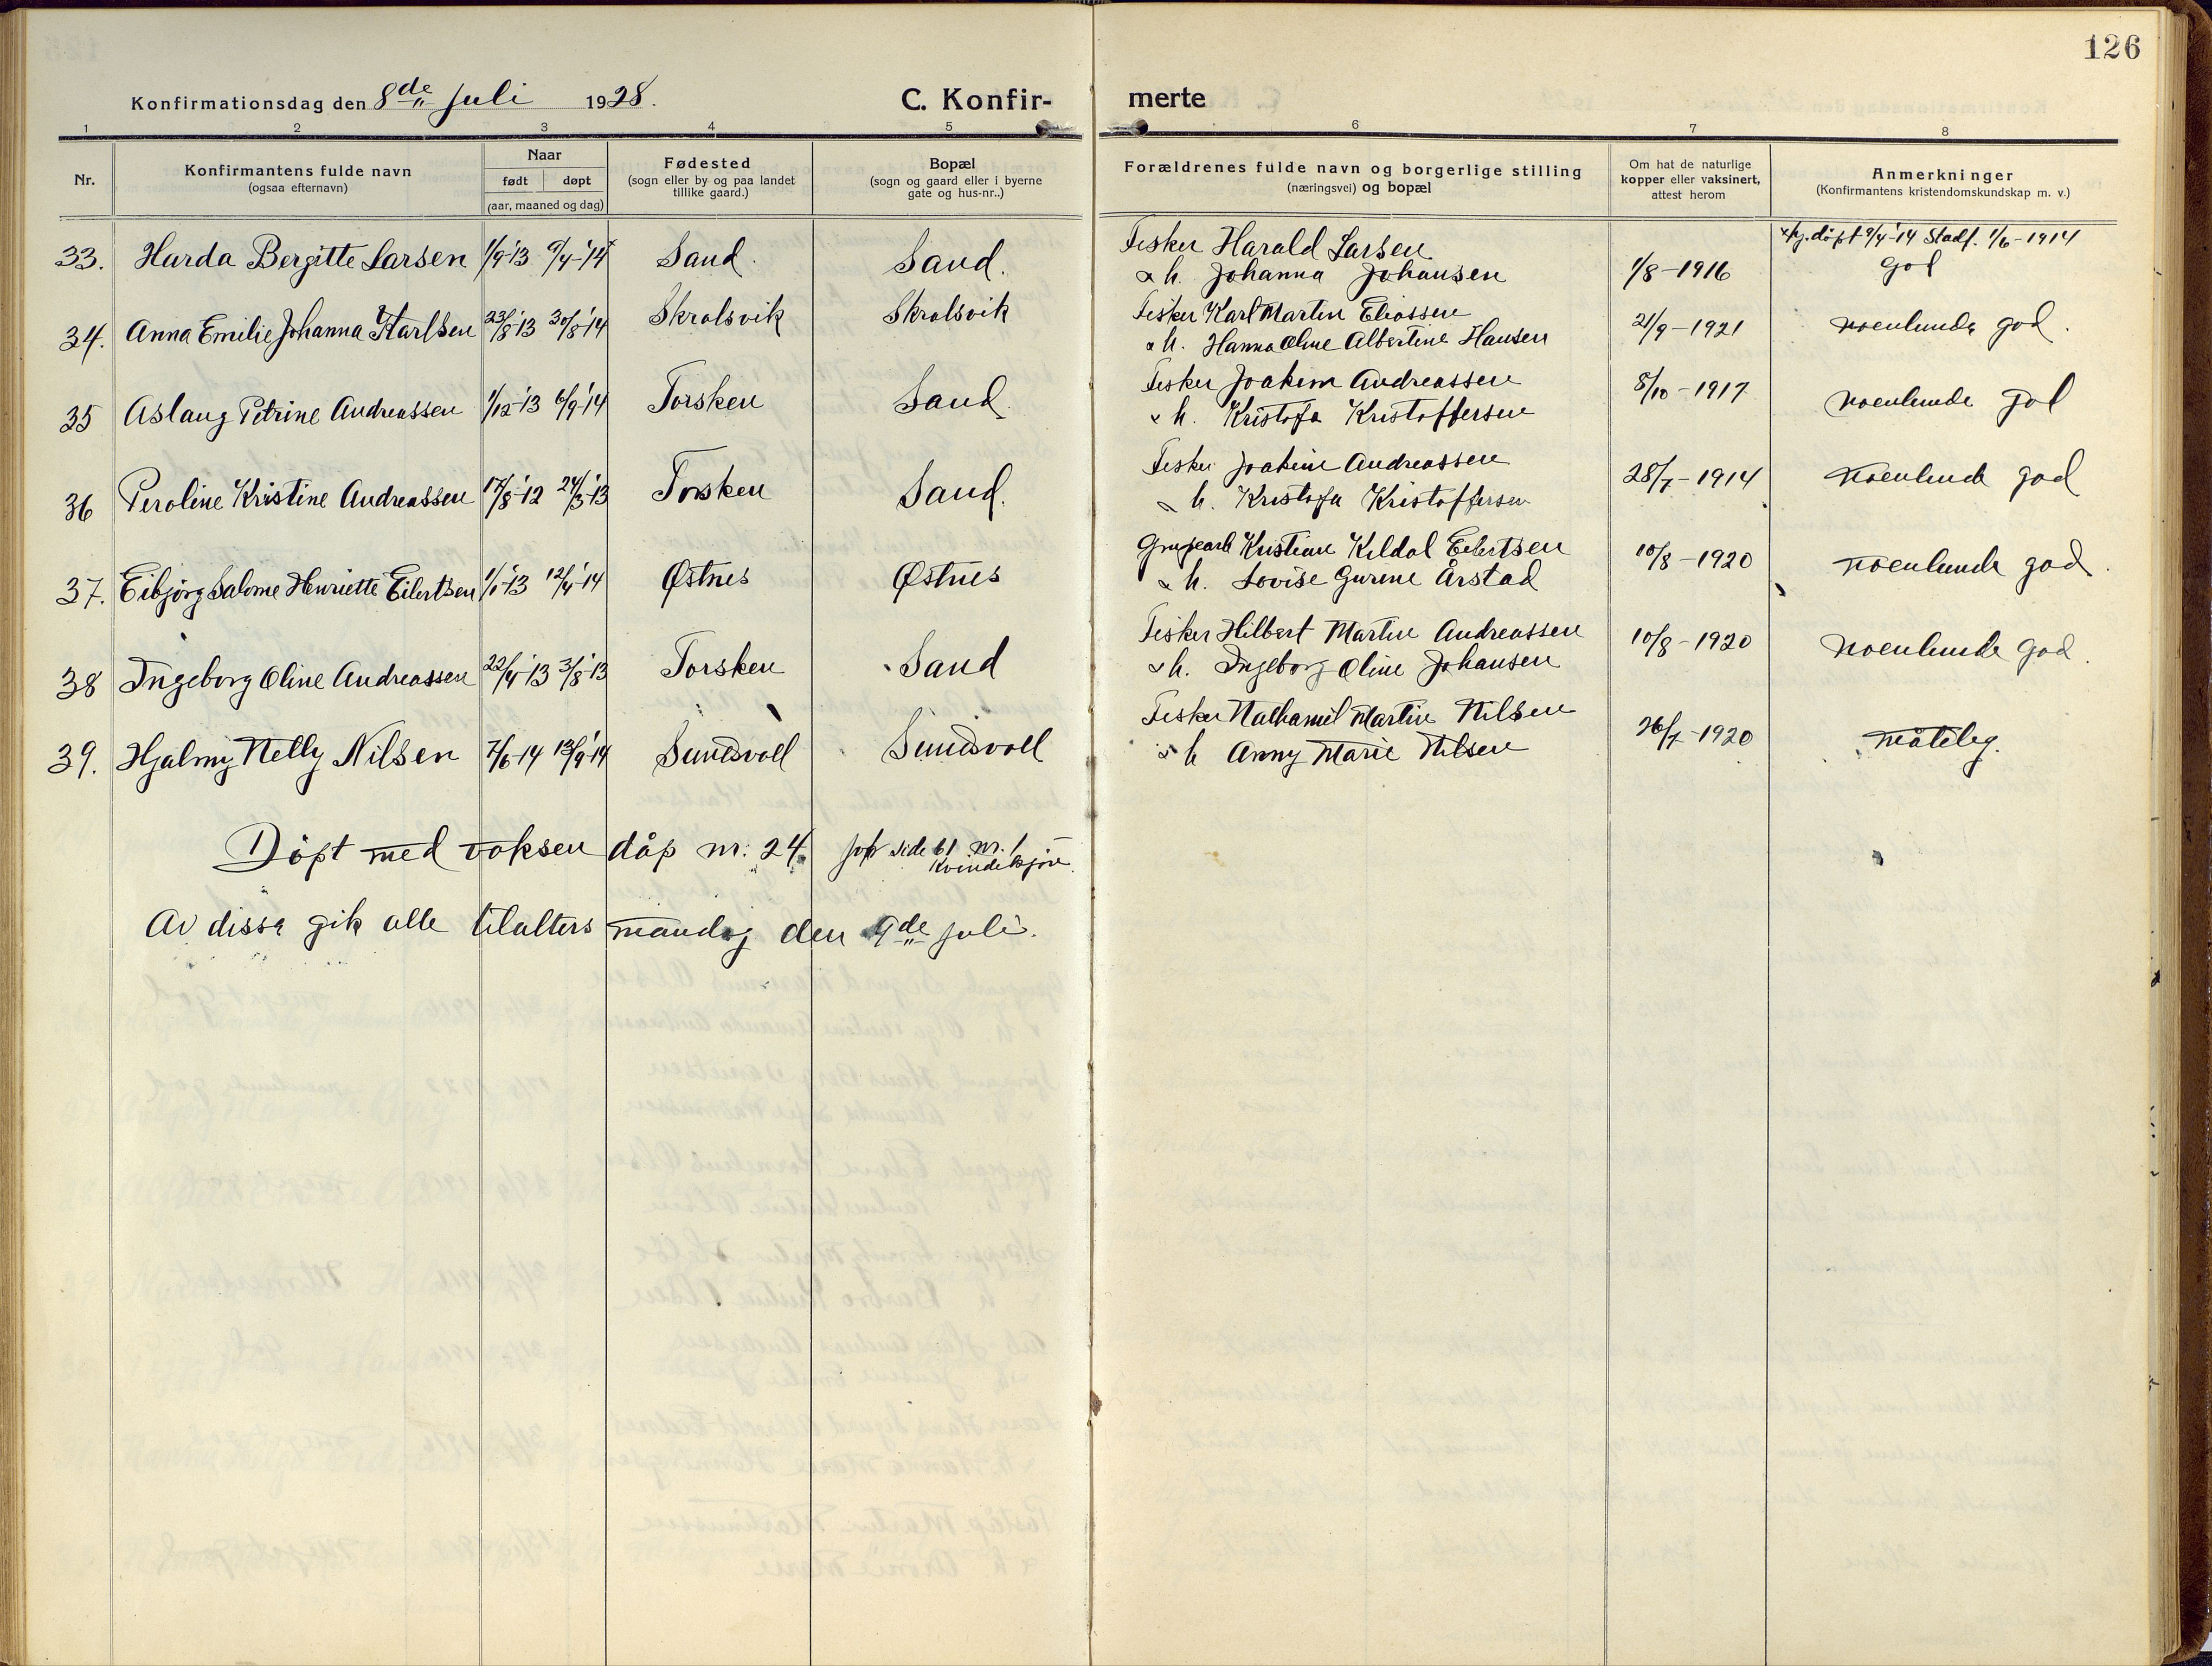 126
Konfirmationsdag den 8de Juli 1928.
C. Konfir-
merte
1 2 3 4 5 6 7 8
Nr.
Konfirmantens fulde navn
(ogsaa efternavn)
Naar
født døpt
(aar, maaned og dag)
Fødested
(sogn eller by og paa landet
tillike gaard.)
Bopæl
(sogn og gaard eller i byerne
gate og hus-nr..)
Forældrenes fulde navn og borgerlige stilling
(næringsvei) og bopæl
Om hat de naturlige
kopper eller vaksinert,
attest herom
Anmerkninger
(Konfirmantens kristendomskundskap m. v.)
33. Harda Bergitte Larsen 1/9-13 9/4-14 x Sand. Sand.
Fisker Harald Larsen
& h. Johanna Johansen
1/8-1916
x hj. døpt 9/4-14 Stadf. 1/6-1914
god
34. Anna Emilie Johanna Karlsen 23/8-13 30/8-14 Skrolsvik Skrolsvik
Fisker Karl Martin Eliassen
& h. Hanna Oline Albertine Hansen
21/9-1921
noenlunde god.
35 Aslaug Petrine Andreassen 1/12-13 6/9-14 Torsken Sand.
Fisker Joakim Andreassen
& h. Kristofa Kristoffersen
8/10-1917
noenlunde god
36 Peroline Kristine Andreassen 17/8-12 24/3-13 Torsken Sand.
Fisker Joakim Andreassen
& h. Kristofa Kristoffersen
28/7-1914
noenlunde god
37. Eibjørg Salome Henriette Eilertsen 1/1-13 12/4-14 Østnes Østnes
Grubearb Kristian Kildal Eilertsen
& h. Lovise Gurine Årstad
10/8-1920
noenlunde god.
38 Ingeborg Oline Andreassen 22/4-13 3/8-13 Torsken Sand
Fisker Hilbert Martin Andreassen
& h. Ingeborg Oline Johansen
10/8-1920
noenlunde god.
39. Hjalmy Nelly Nilsen 7/6-14 13/9-14 Sundsvoll Sundsvoll
Fisker Nathaniel Martin Nilsen
& h Anny Marie Nilsen
26/7-1920
måteleg.
Døpt med voksen dåp nr. 24. side 61 nr. 1
Kvindekjøn.
Av disse gik alle tilalters mandag den 9de juli.